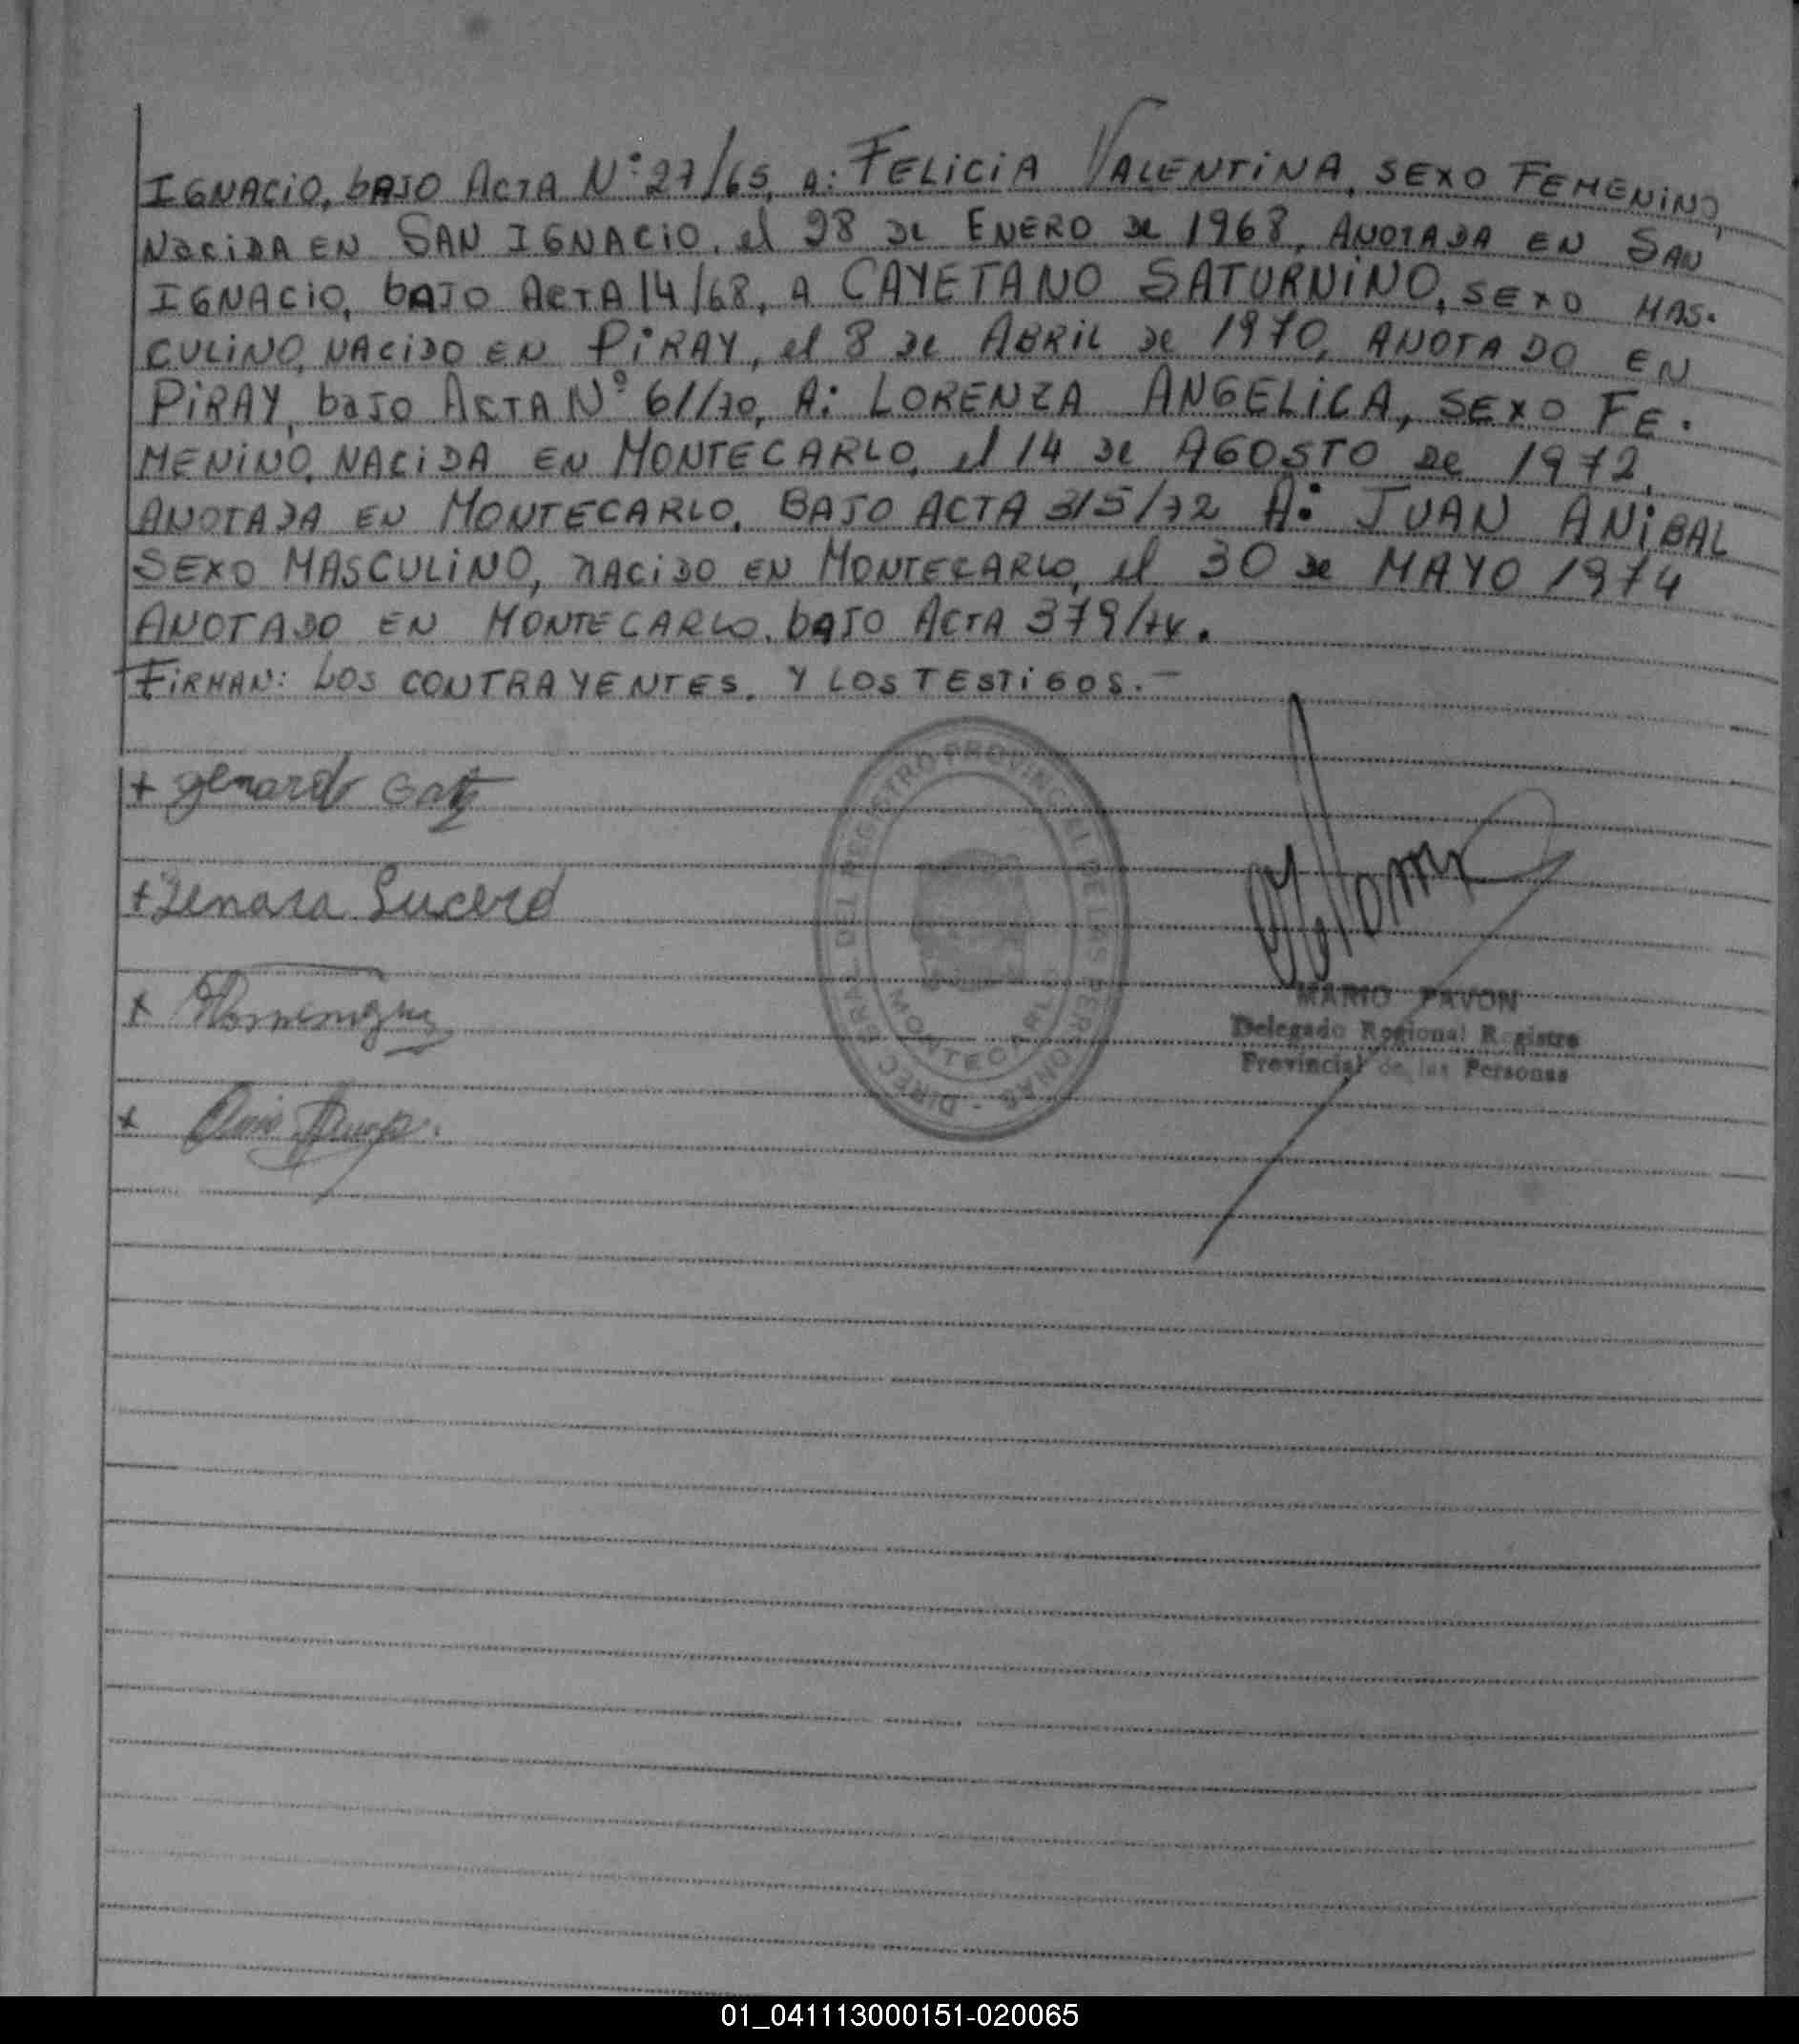 IGNACIO, bAJO ACTA N° 27/65, A: FELICIA VALENTINA, SEXO FEMENINO,
NACIDA EN SAN IGNACIO, el 28 DE ENERO DE 1968, ANOTADA EN SAN
IGNACIO, bAJO ACTA 14/68, A CAYETANO SATURNINO, SEXO MAS.
CULINO, NACIDO EN PIRAY, el 8 DE ABRIL DE 1970, ANOTADO EN
PIRAY, baJO ACTA N° 61/70, A: LORENZA ANGELICA, SEXO FE.
MENINO, NACIDA EN MONTECARLO, el 14 DE AGOSTO DE 1972,
ANOTADA EN MONTECARLO, BAJO ACTA 315/72 A: JUAN ANIBAL
SEXO MASCULINO, NACIDO EN MONTECARLO, el 30 DE MAYO 1974
ANOTADO EN MONTECARLO, bAJO ACTA 379/74.
FIRMAN: LOS CONTRAYENTES, Y LOS TESTIGOS.-
+ genardo
+ Jenara Lucero
DIREC GRAL DEL REGISTRO PROVINCIAL DE LAS PERSONAS -
MONTECARLO
MARIO PAVON
Delegado Regional Registro
Provincial de las Personas
01_041113000151-020065